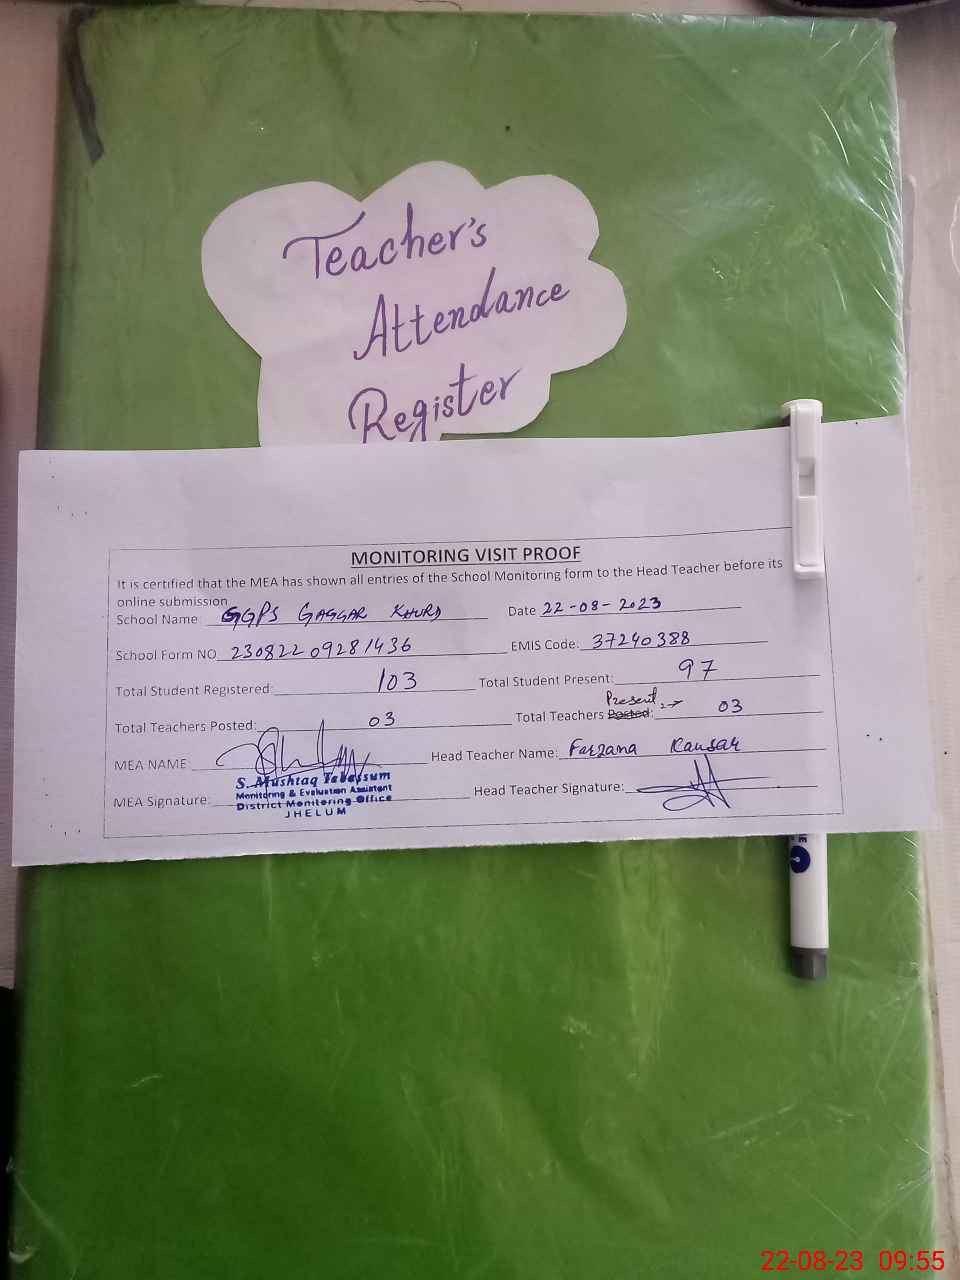 Teacher's
Attendance
Register
MONITORING VISIT PROOF
It is certified that the MEA has shown all entries of the School Monitoring form to the Head Teacher before its
online submission
School Name: GGPS GAGGAR KHURD Date 22-08-2023
School Form NO 230822 09281436 EMIS Code: 37240388
Total Student Registered: 103 Total Student Present: 97
Total Teachers Posted: 03 Total Teachers Posted: Present 03
MEA NAME Head Teacher Name: Farzana Kausar
S. Mushtaq Tabassum
Monitoring & Evaluation Assistant
District Monitoring Office
JHELUM
MEA Signature: Head Teacher Signature:
22-08-23 09:55